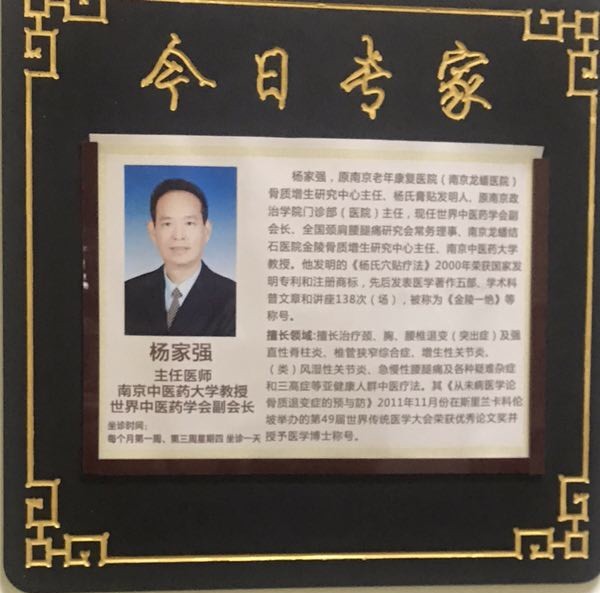 今日专家
杨家强，原南京老年康复医院（南京龙蟠医院）
骨质增生研究中心主任、杨氏膏贴发明人、原南京政
治学院门诊部（医院）主任，现任世界中医药学会副
会长、全国颈肩腰腿痛研究会常务理事、南京龙蟠结
石医院金陵骨质增生研究中心主任、南京中医药大学
教授。他发明的《杨氏穴贴疗法》2000年荣获国家发
明专利和注册商标，先后发表医学著作五部、学术科
普文章和讲座138次（场），被称为《金陵一绝》等
称号。
擅长领域:擅长治疗颈、胸、腰椎退变（突出症）及强
直性脊柱炎、椎管狭窄综合症、增生性关节炎、
（类）风湿性关节炎、急慢性腰腿痛及各种疑难杂症
和三高症等亚健康人群中医疗法。其《从未病医学论
骨质退变症的预与防》2011年11月份在斯里兰卡科伦
坡举办的第49届世界传统医学大会荣获优秀论文奖并
授予医学博士称号。
杨家强
主任医师
南京中医药大学教授
世界中医药学会副会长
坐诊时间：
每个月第一周、第三周星期四 坐诊一天